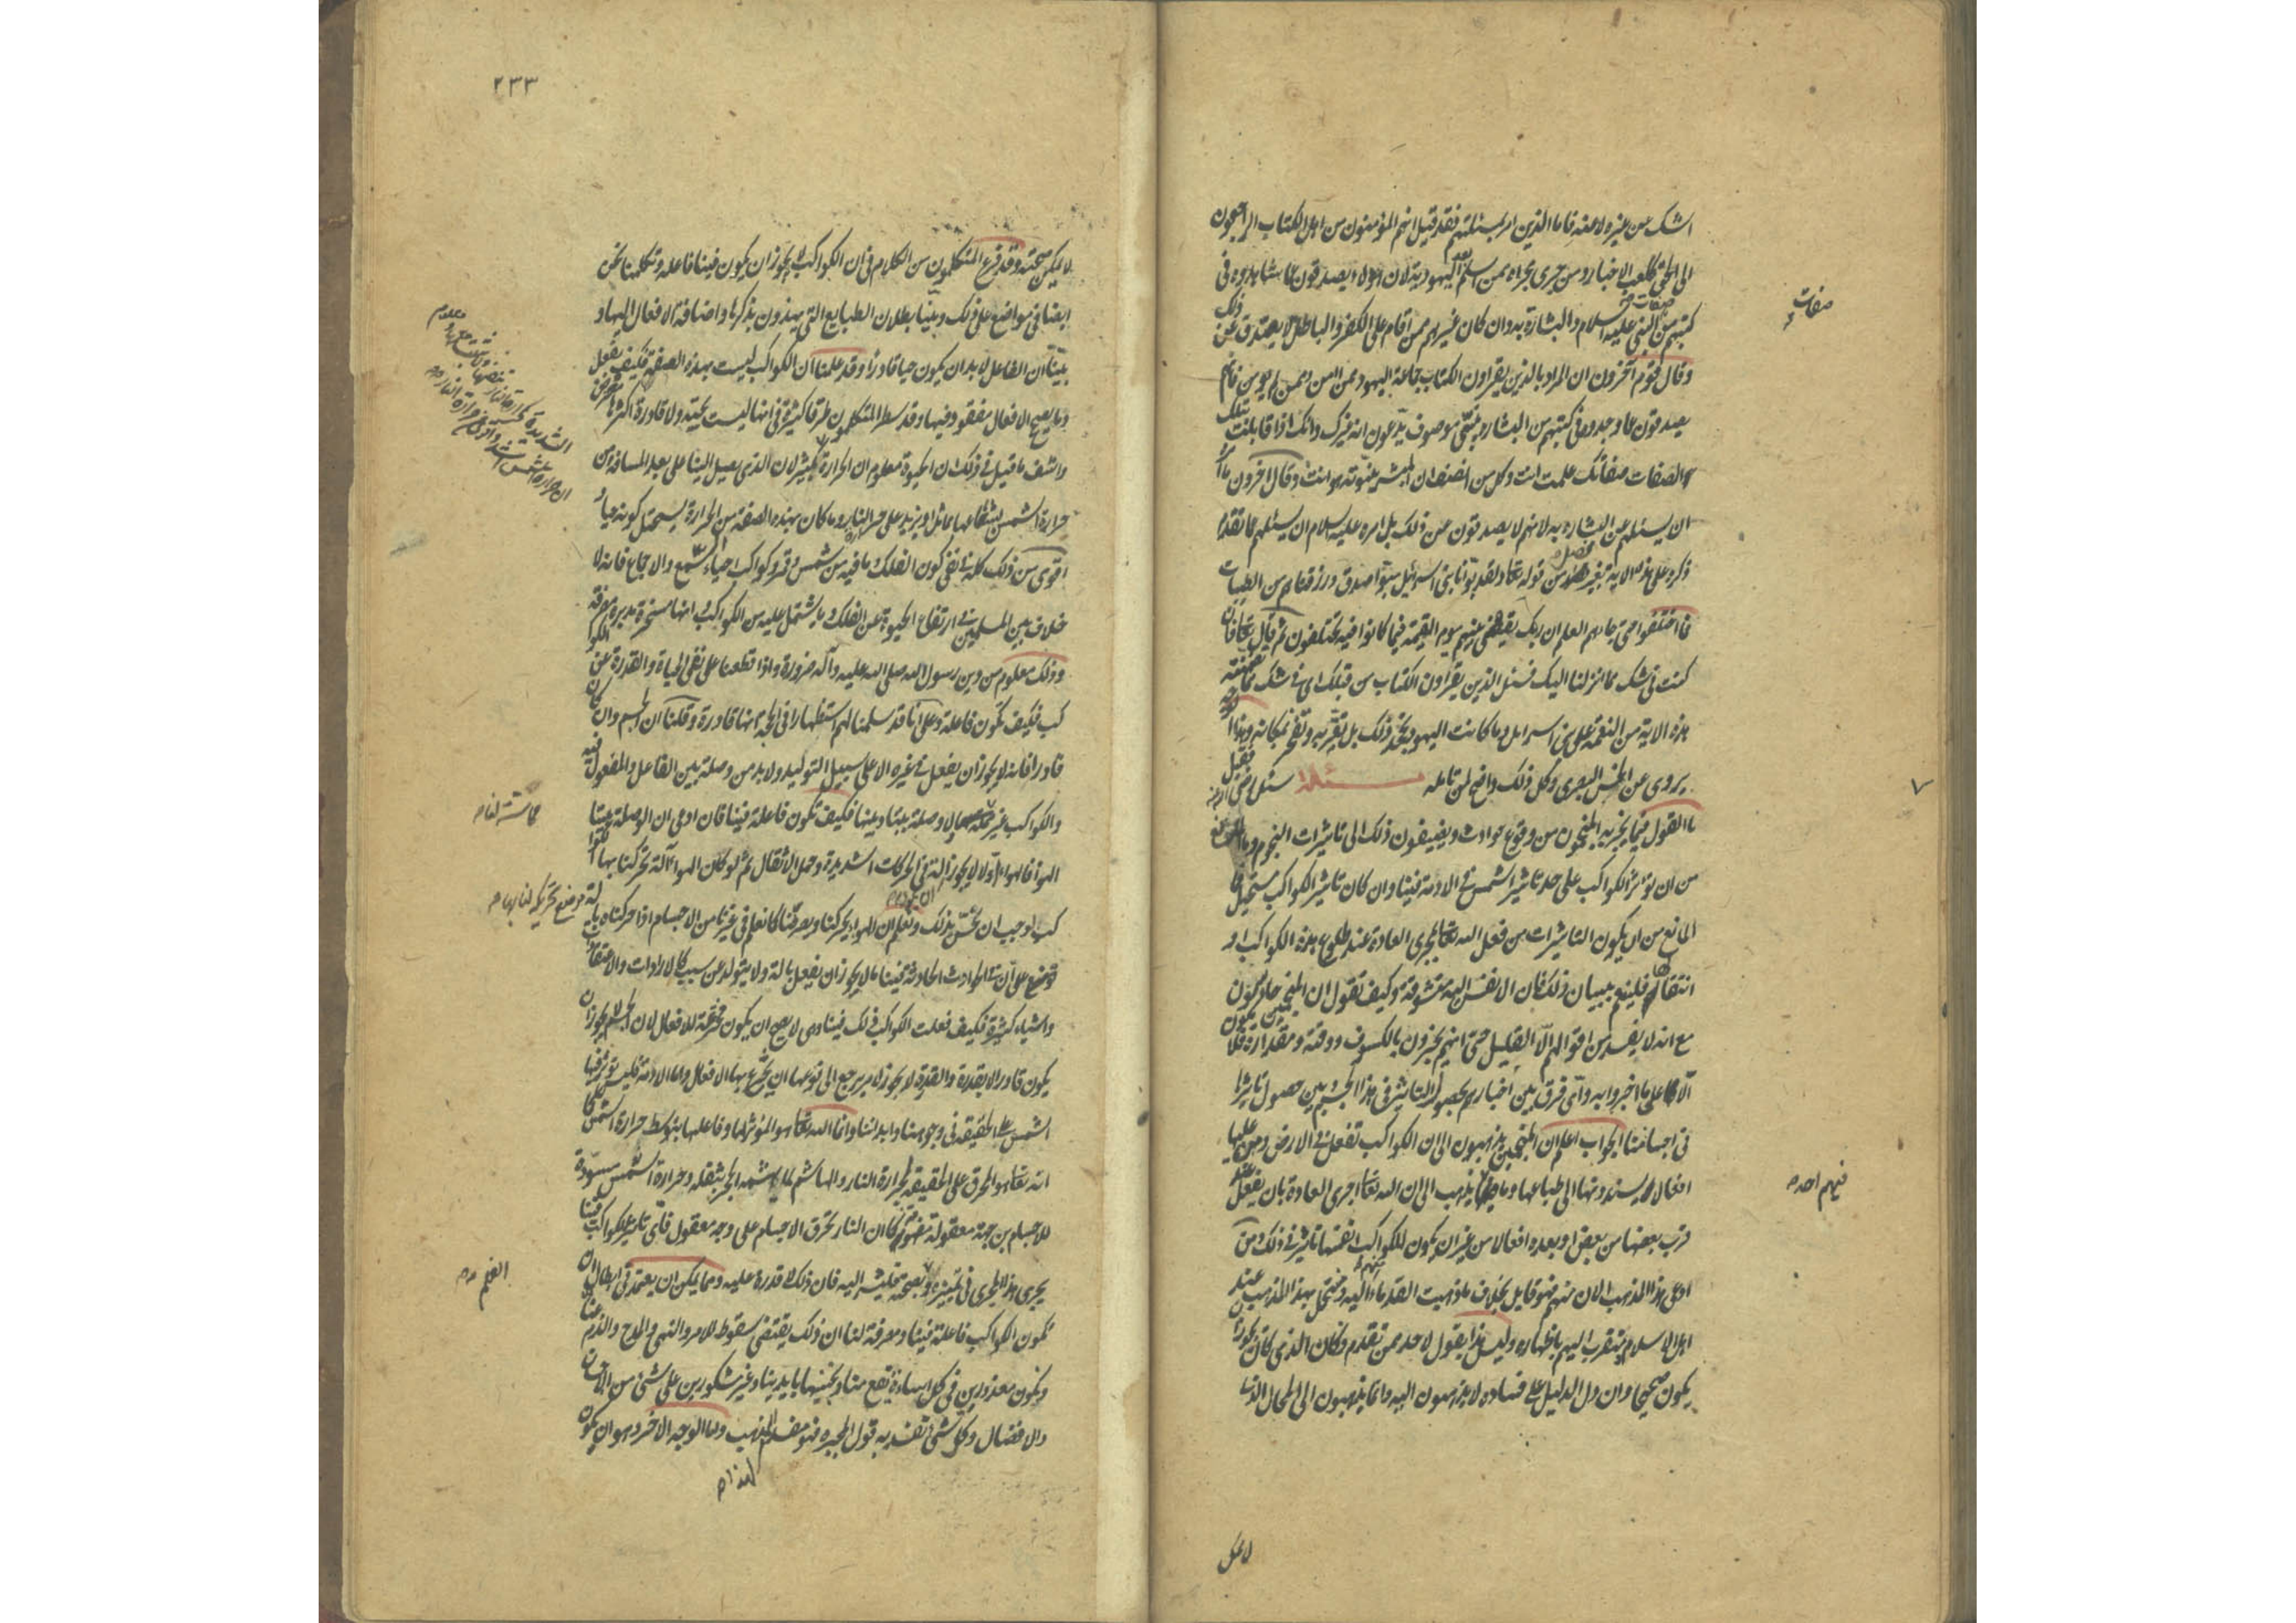 اشك عن غيره لا عنه فاما الذين امر بمسئلتهم فقد قيل انهم المؤمنون من اهل الكتاب الراجعون
الى الحق ككعب الاحبار ومن جرى مجراه ممن اسلم بعد اليهودية لان هؤلاء يصدقون عما شاهدوه في
كتبهم من صفات النبي عليه السلام والبشارة به وان كان غيرهم ممن اقام على الكفر والباطل لا يصدق عن ذلك
وقال قوم آخرون ان المراد بالذين يقراون الكتاب جماعة اليهود ممن امن وممن لم يؤمن فانهم
يصدقون عما وجدوه في كتبهم من البشارة بنبي موصوف يدعون انه غيرك وانك اذا قابلت بتلك
الصفات صفاتك علمت انت وكل من انصف ان المبشر بنبوته هو انت وقال اخرون ما امر
ان يسئلهم عن البشارة به لانهم لا يصدقون عن ذلك بل امره عليه السلام ان يسئلهم عما تقدم
ذكره على هذه الاية بغير فصل من قوله تعا ولقد بوأنا بني اسرائيل مبوأ صدق ورزقناهم من الطيبات
فما اختلفوا حتى جاءهم العلم ان ربك يقضي بينهم يوم القيمة فيما كانوا فيه يختلفون ثم قال تعا فان
كنت في شك مما انزلنا اليك فسئل الذين يقراون الكتاب من قبلك اي في شك مما تضمنته
هذه الاية من النعمة على بني اسرائل وما كانت اليهود تجحد ذلك بل تقر به وتفخر بمكانه وهذا الوجه
يروى عن الحسن البصري وكل ذلك واضح لمن تامله مسئلة سئل رضي الله عنه فقيل
ما القول فيما يخبر به المنجمون من وقوع حوادث ويضيفون ذلك الى تاثيرات النجوم وما المانع
من ان تؤثر الكواكب على حد تاثير الشمس في الادمة فينا وان كان تاثير الكواكب مستحيلا فما
المانع من ان يكون التاثيرات من فعل الله تعا بمجرى العادة عند طلوع هذه الكواكب او
انتقالها فلينعم ببيان ذلك فان الانفس اليه متشوقة وكيف تقول ان المنجمين حادسون
مع انه لا يفسد من اقوالهم الا القليل حتى انهم يخبرون بالكسوف ووقته ومقداره فلا يكون
الا على ما اخبروا به واي فرق بين اخبارهم بحصول التاثير في هذا الجسم وبين حصول تاثيرها
في اجسامنا الجواب اعلم ان المنجمين يذهبون الى ان الكواكب تفعل في الارض ومن عليها
افعالا يسندونها الى طباعها وما فيهم احد يذهب الى ان الله تعا اجرى العادة بان يفعل عند
قرب بعضها من بعض او بعده افعالا من غير ان يكون للكواكب انفسها تاثير في ذلك ومن
ادعى هذا المذهب الان منهم فهو قايل بخلاف ما ذهبت القدماء اليه ومتجمل بهذا المذهب عند
اهل الاسلام ومتقرب اليهم باظهاره وليس هذا يقول لاحد ممن تقدم وكان الذي كان يجوز ان
يكون صحيحا وان دل الدليل على فساده لا يذهبون اليه وانما يذهبون الى المحال الذي
لا يمكن
صفات
فيهم احد
٢٣٣
لا يمكن صحته وقد فرغ المتكلمون من الكلام في ان الكواكب لا يجوز ان يكون فينا فاعلة وتكلمنا نحن
ايضا في مواضع على ذلك وبينا بطلان الطبايع التي يهذون بذكرها واضافة الافعال اليها و
بينا ان الفاعل لا بد ان يكون حيا قادرا وقد علمنا ان الكواكب ليست بهذه الصفة فكيف يفعل
وما يصحح الافعال مفقود فيها وقد سطر المتكلمون طرقا كثيرة في انها ليست بحية ولا قادرة اكثرها معترض
واشف ما قيل في ذلك ان الحيوة معلوم ان الحرارة
حرارة الشمس بشعاعها بماثل او يزيد على حر النار وما كان بهذه الصفة من الحرارة يستحيل كونه حيا و
اقوى من ذلك كله في نفي كون الفلك وما فيه من شمس وقمر وكواكب احياء السمع والاجماع فانه لا
خلاف بين المسلمين في ارتفاع الحيوة عن الفلك وما يشتمل عليه من الكواكب وانها مسخرة مدبرة مصرفة
وذلك معلوم من دين رسول الله صلى الله عليه وآله ضرورة واذا قطعنا على نفي الحياة والقدرة عن الكوا
كب فكيف تكون فاعلة وعلى اننا قد سلمنا لهم استظهارا في الحجة انها قادرة وقلنا ان الجسم وان كان
قادرا فانه لا يجوز ان يفعل في غيره الا على سبيل التوليد ولا بد من وصلة بين الفاعل والمفعول فيه
والكواكب غير مماسة لنا ولا وصلة بيننا وبينها فكيف تكون فاعلة فينا فان ادعى ان الوصلة بيننا
الهواء فالهواء اولا لا يجوز الة في الحركات الشديدة وحمل الاثقال ثم لو كان الهواء آلة تحركنا بها الكوا
كب لوجب ان نحس بذلك ونعلم ان الهواء يحركنا ويصرفنا كما نعلم في غيرنا من الاجسام اذا حركناه بالة
على ان في الحوادث الحادثة فينا ما لا يجوز ان يفعل بالة ولا يتولد عن سبب كالارادات والاعتقادات
واشياء كثيرة فكيف فعلت الكواكب ذلك فينا وهي لا يصح ان يكون مخترعة للافعال لان الجسم لا يجوز ان
يكون قادرا الا بقدرة والقدرة لا يجوز لامر يرجع الى نوعها ان تخترع بها الافعال واما الادمة فليس تؤثر فيها
الشمس على الحقيقة في وجوهنا وابداننا وانما الله تعا هو المؤثر لها وفاعلها بتوسط حرارة الشمس كما
انه تعا هو المحرق على الحقيقة بحرارة النار والهاشم لما يهشمه الحجر بثقله وحرارة الشمس مسودة
للاجسام من جهة معقولة مفهومة كما ان النار تحرق الاجسام على وجه معقول فاي تاثير للكواكب فينا
يجري هذا المجرى في تمييزه والعلم بصحته فليشر اليه فان ذلك لا قدرة عليه ومما يمكن ان يعتمد في ابطال ان
تكون الكواكب فاعلة فينا ومصرفة لنا ان ذلك يقتضي سقوط الامر والنهي والمدح والذم عنا
ونكون معذورين في كل اساءة تقع منا ونجنيها بايدينا وغير مشكورين على شيء من الاحسان
والافضال وكل شيء نفسد به قول المجبرة فهو مفسد لهذا المذهب واما الوجه الاخر وهو ان يكون
مماسة لنا
العلم
لهذا